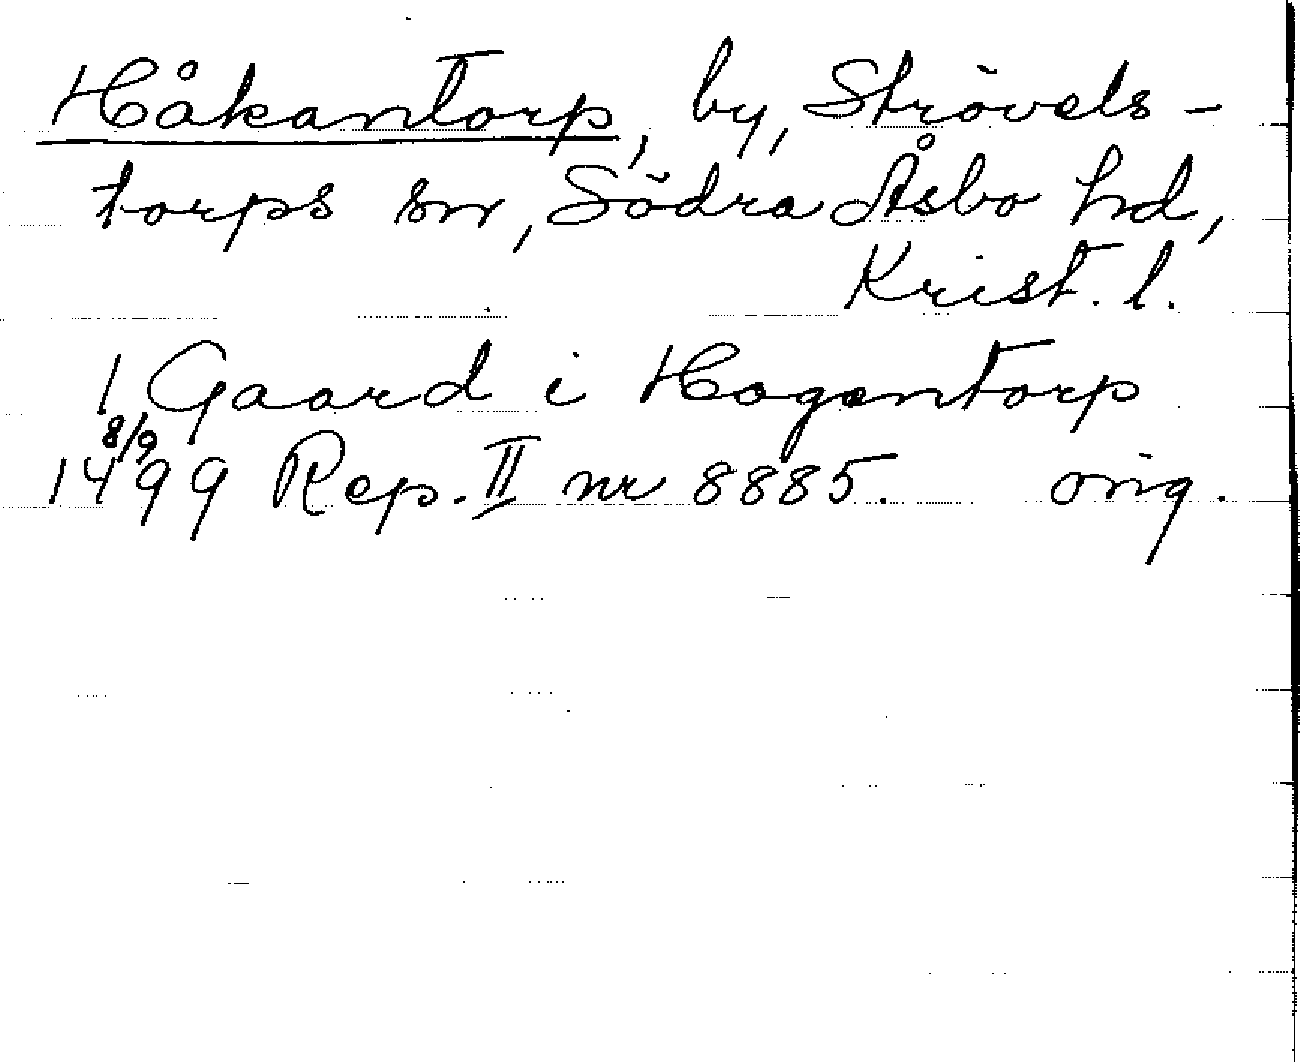 Håkantorp, by, Strövels-
torps sn, Södra Åsbo hd,
Krist. l.
1 Gaard i Hagentorp
14 8/9 99 Rep. II nr 8885. orig.